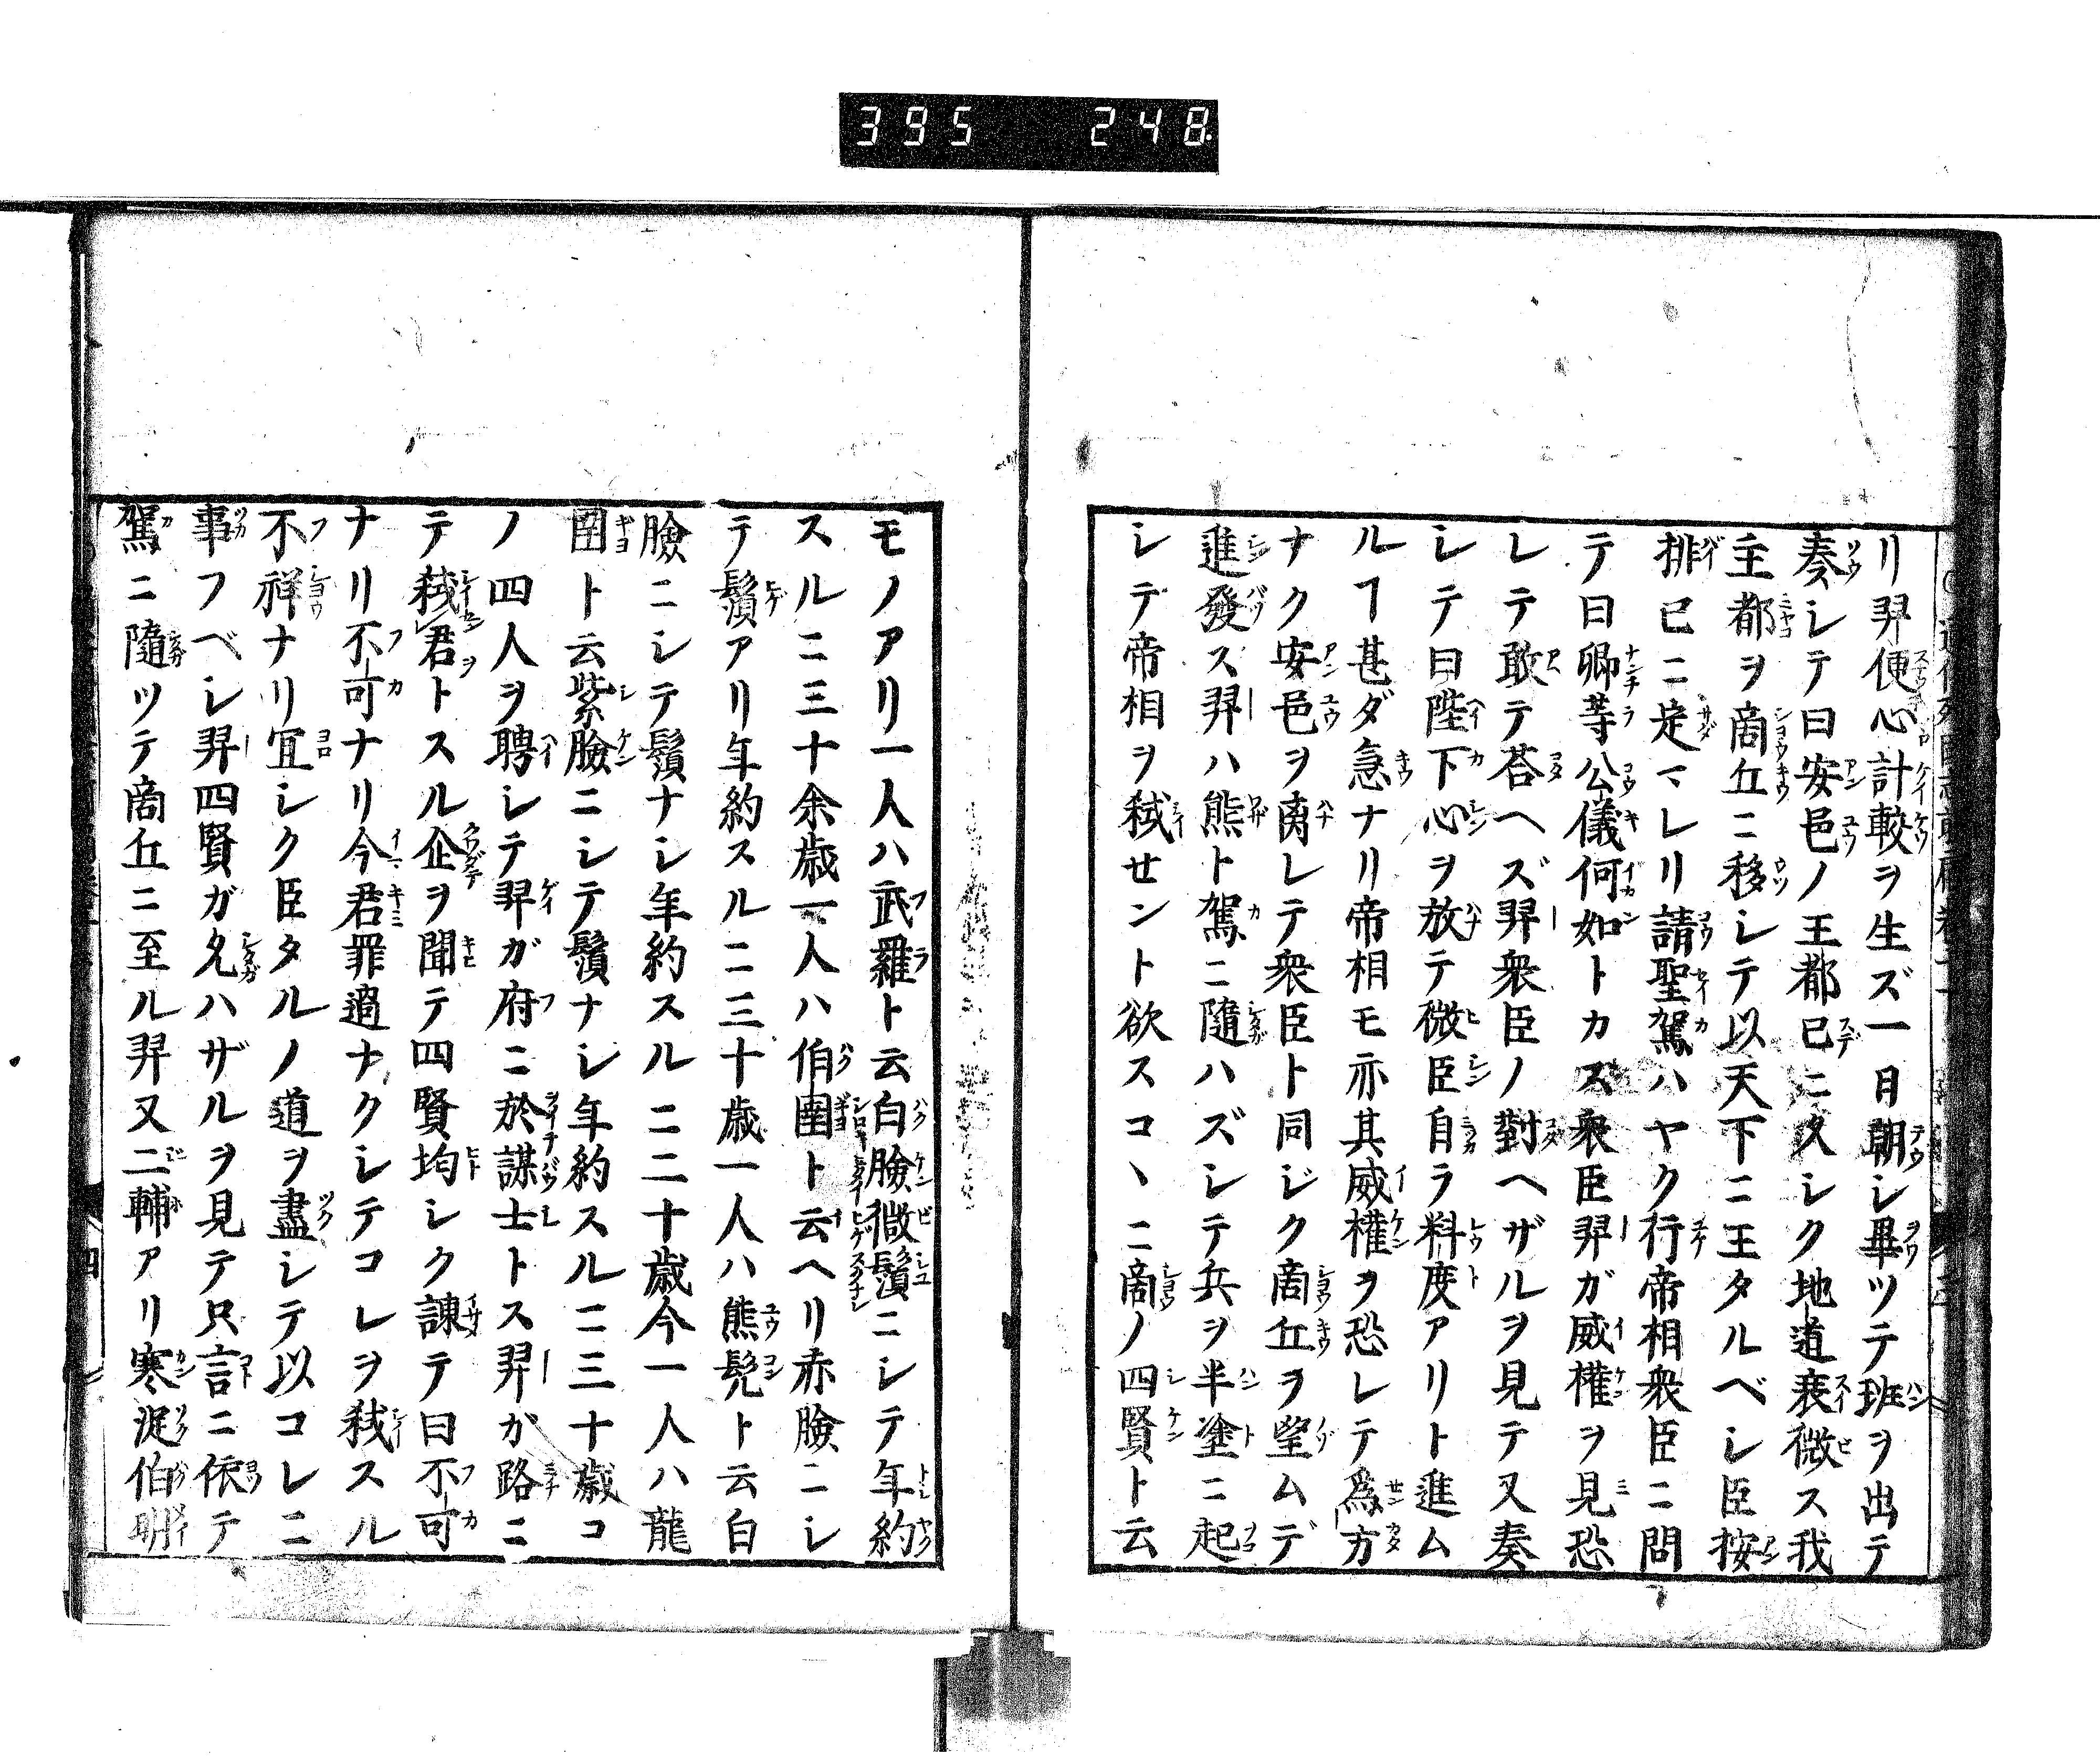 395 248
リ羿便心計較ヲ生ズ一日朝シ畢ツテ班ヲ出テ
奏シテ曰安邑ノ王都已ニ久シク地道衰微ス我
主都ヲ商丘ニ移シテ以天下ニ王タルベシ臣按
排已ニ定マレリ請聖駕ハヤク行帝相衆臣ニ問
テ曰卿等公儀何如トカス衆臣羿ガ威権ヲ見恐
レテ敢テ荅ヘズ羿衆臣ノ對ヘザルヲ見テ又奏
シテ曰陛下心ヲ放テ微臣自ラ料度アリト進ム
ルヿ甚ダ急ナリ帝相モ亦其威権ヲ恐レテ為方
ナク安邑ヲ离レテ衆臣ト同ジク商丘ヲ望ムデ
進發ス羿ハ熊ト駕ニ隨ハズシテ兵ヲ半塗ニ起
シテ帝相ヲ弑せント欲スコヽニ商ノ四賢ト云
モノアリ一人ハ武羅ト云白臉微鬚ニシテ年約
スルニ三十余歳一人ハ伯圉ト云ヘリ赤臉ニシ
テ鬚アリ年約スルニ三十歳一人ハ熊髡ト云白
臉ニシテ鬚ナシ年約スル二二十歳今一人ハ龍
圉ト云紫臉ニシテ鬚ナシ年約スルニ三十歳コ
ノ四人ヲ聘シテ羿ガ府ニ於謀士トス羿ガ路ニ
テ弑君トスル企ヲ聞テ四賢均シク諌テ曰不可
ナリ不可ナリ今君罪過ナクシテコレヲ弑スル
不祥ナリ宜シク臣タルノ道ヲ盡シテ以コレニ
事フベシ羿四賢ガ允ハザルヲ見テ只言ニ依テ
駕ニ隨ツテ商丘ニ至ル羿又二輔アリ寒浞伯明
四